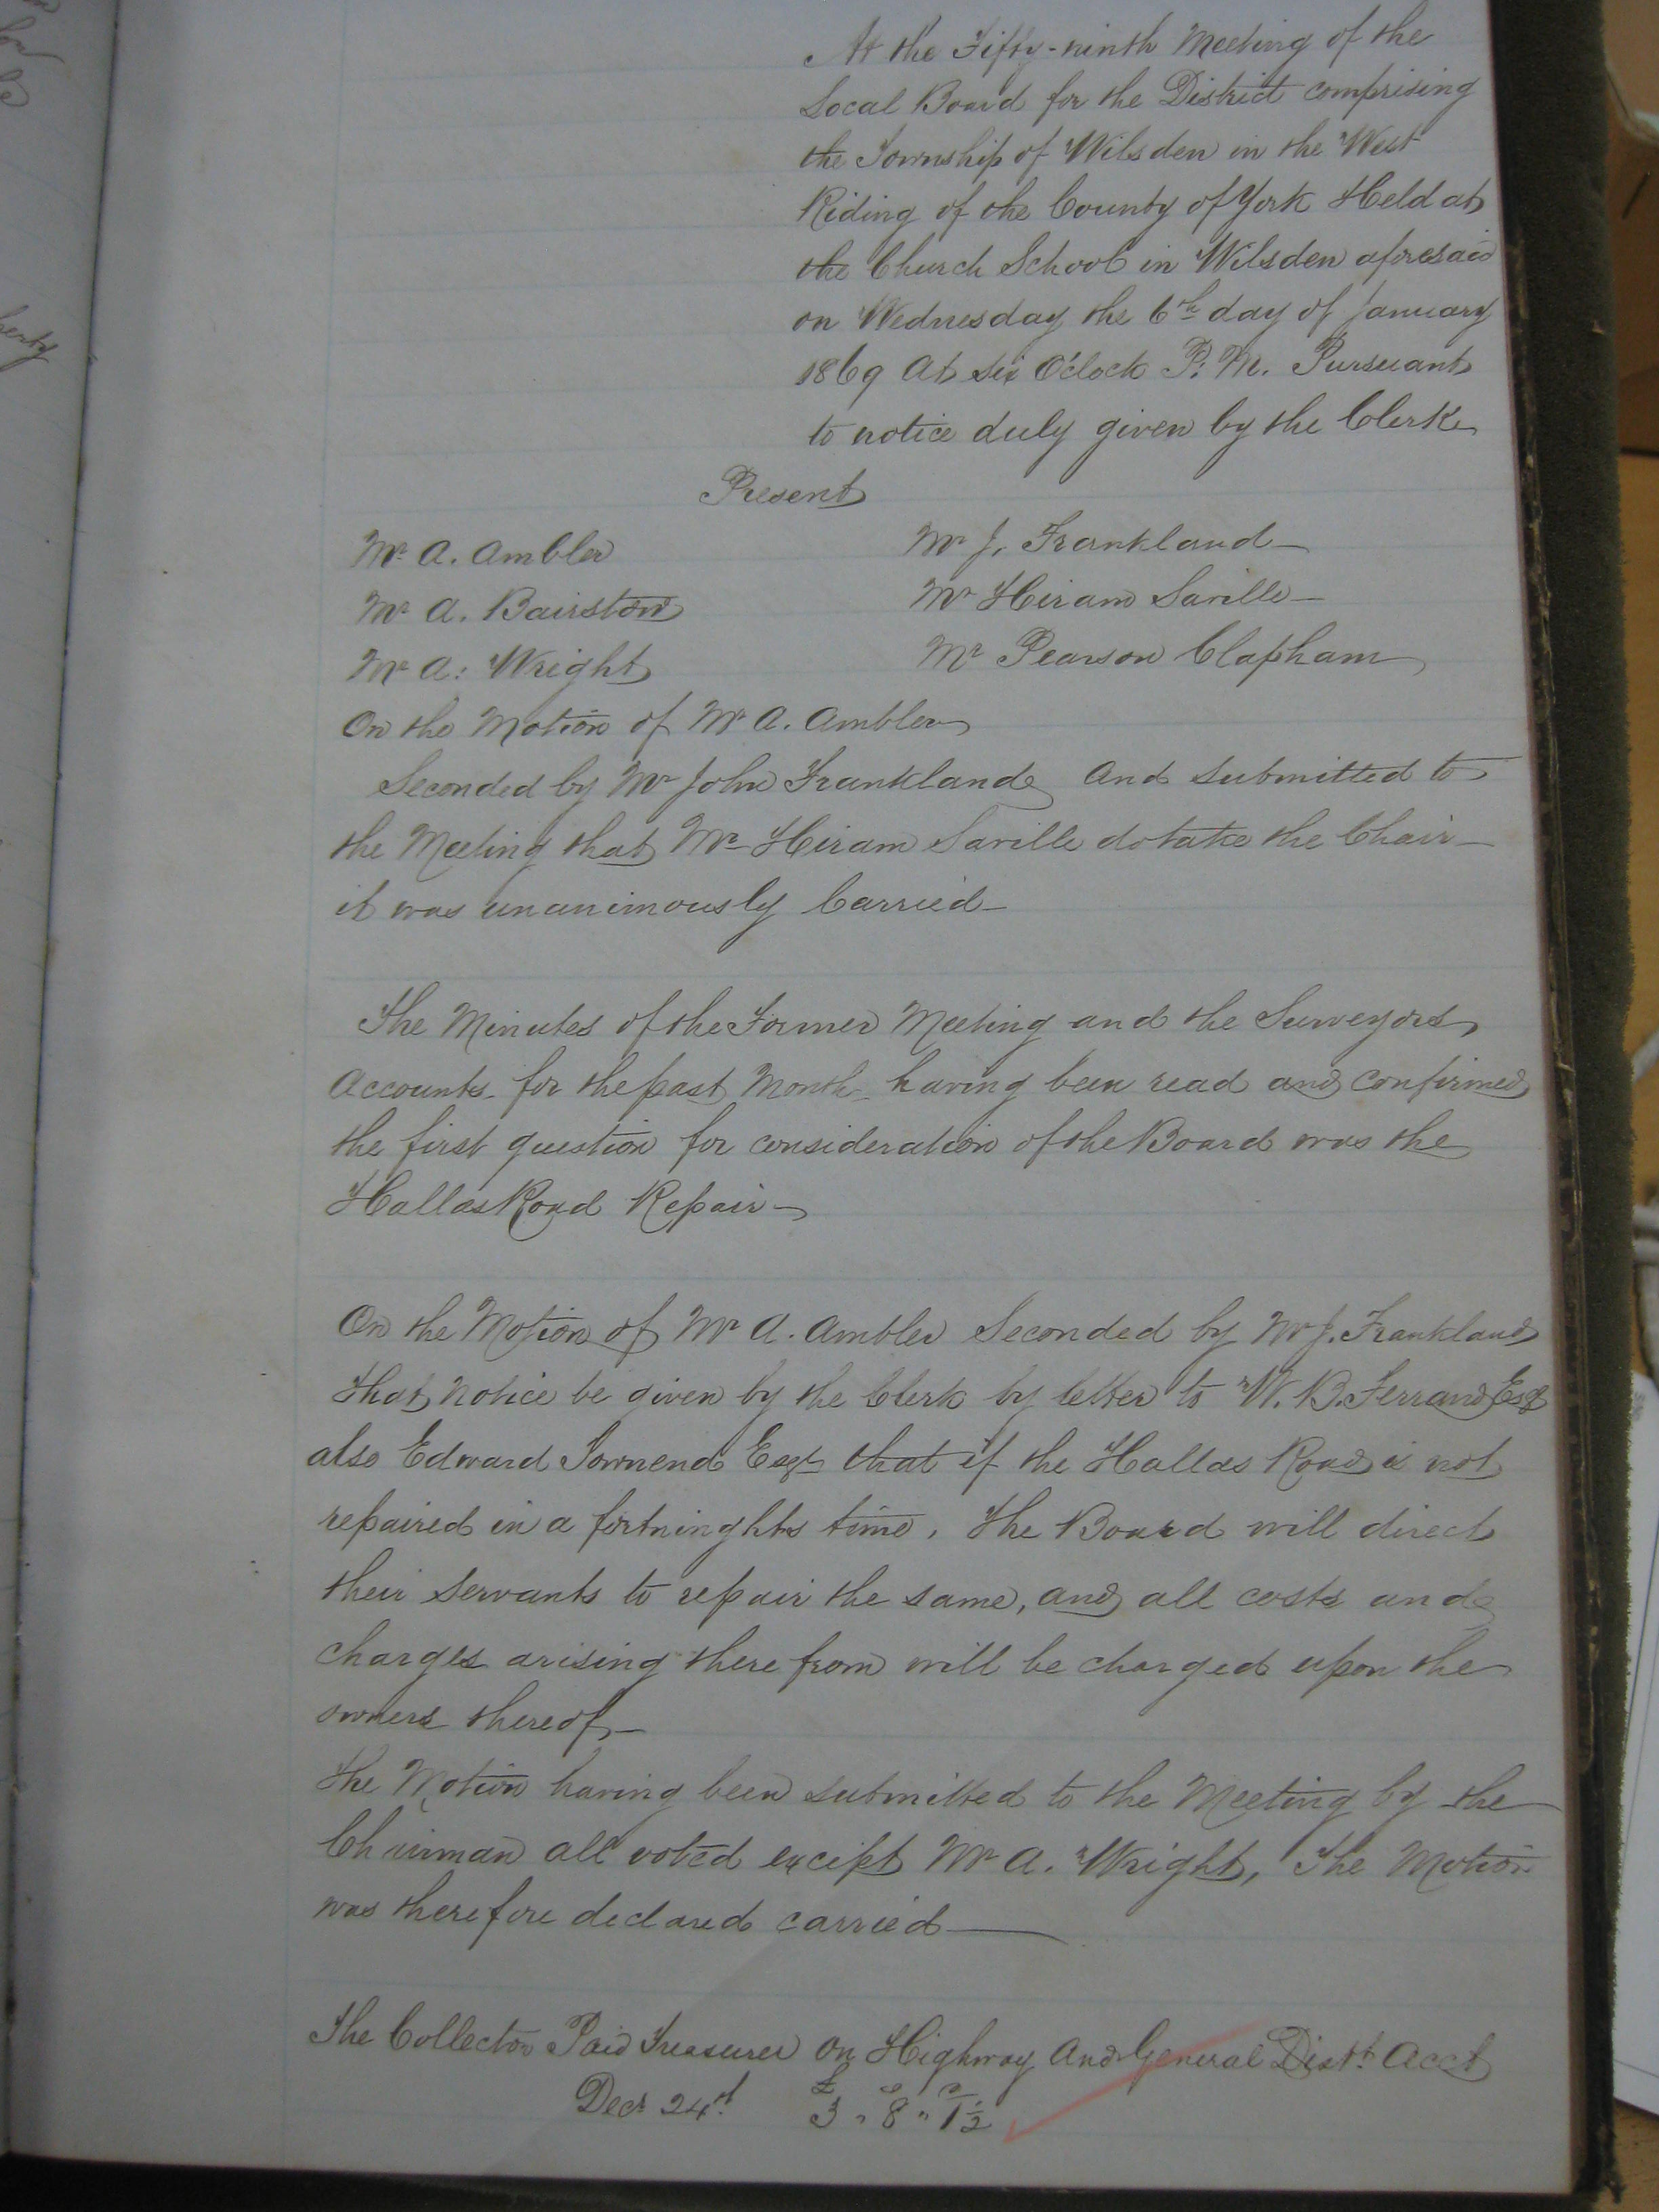 At the Fifty-ninth Meeting of the
Local Board for the District comprising
the Township of Wilsden in the West
Riding of the County of York Held at
the Church School in Wilsden aforesaid
on Wednesday the 6th day of January
1869 At six O'Clock P.M. Pursuant
to notice duly given by the Clerk
Present
Mr A. Ambler
Mr J. Frankland
Mr A. Bairstow
Mr Hiram Saville
Mr A. Wright
Mr Pearson Clapham
On the Motion of Mr A. Ambler
Seconded by Mr John Frankland And submitted to
the Meeting that Mr Hiram Saville do take the Chair
it was unanimously Carried
The Minutes of the Former Meeting and the Surveyors
Accounts for the past Month having been read and confirmed
the first question for consideration of the Board was the
Hallas Road Repair
On the Motion of Mr A. Ambler Seconded by Mr J. Frankland
that notice be given by the Clerk by letter to W. B. Ferrand Esqr
also Edward Townend Esqr that if the Hallas Road is not
repaired in a fortninghts time, the Board will direct
their servants to repair the same, and all costs and
charges arising there from will be charged upon the
owners thereof
the Motion having been submitted to the Meeting by the
Chairman all voted except Mr A. Wright, The Motion
was therefore declared carried
The Collector Paid Treasurer on Highway And General Distt. Acct
£ s d
Decr 24st 3 " 8 " 1½
erty